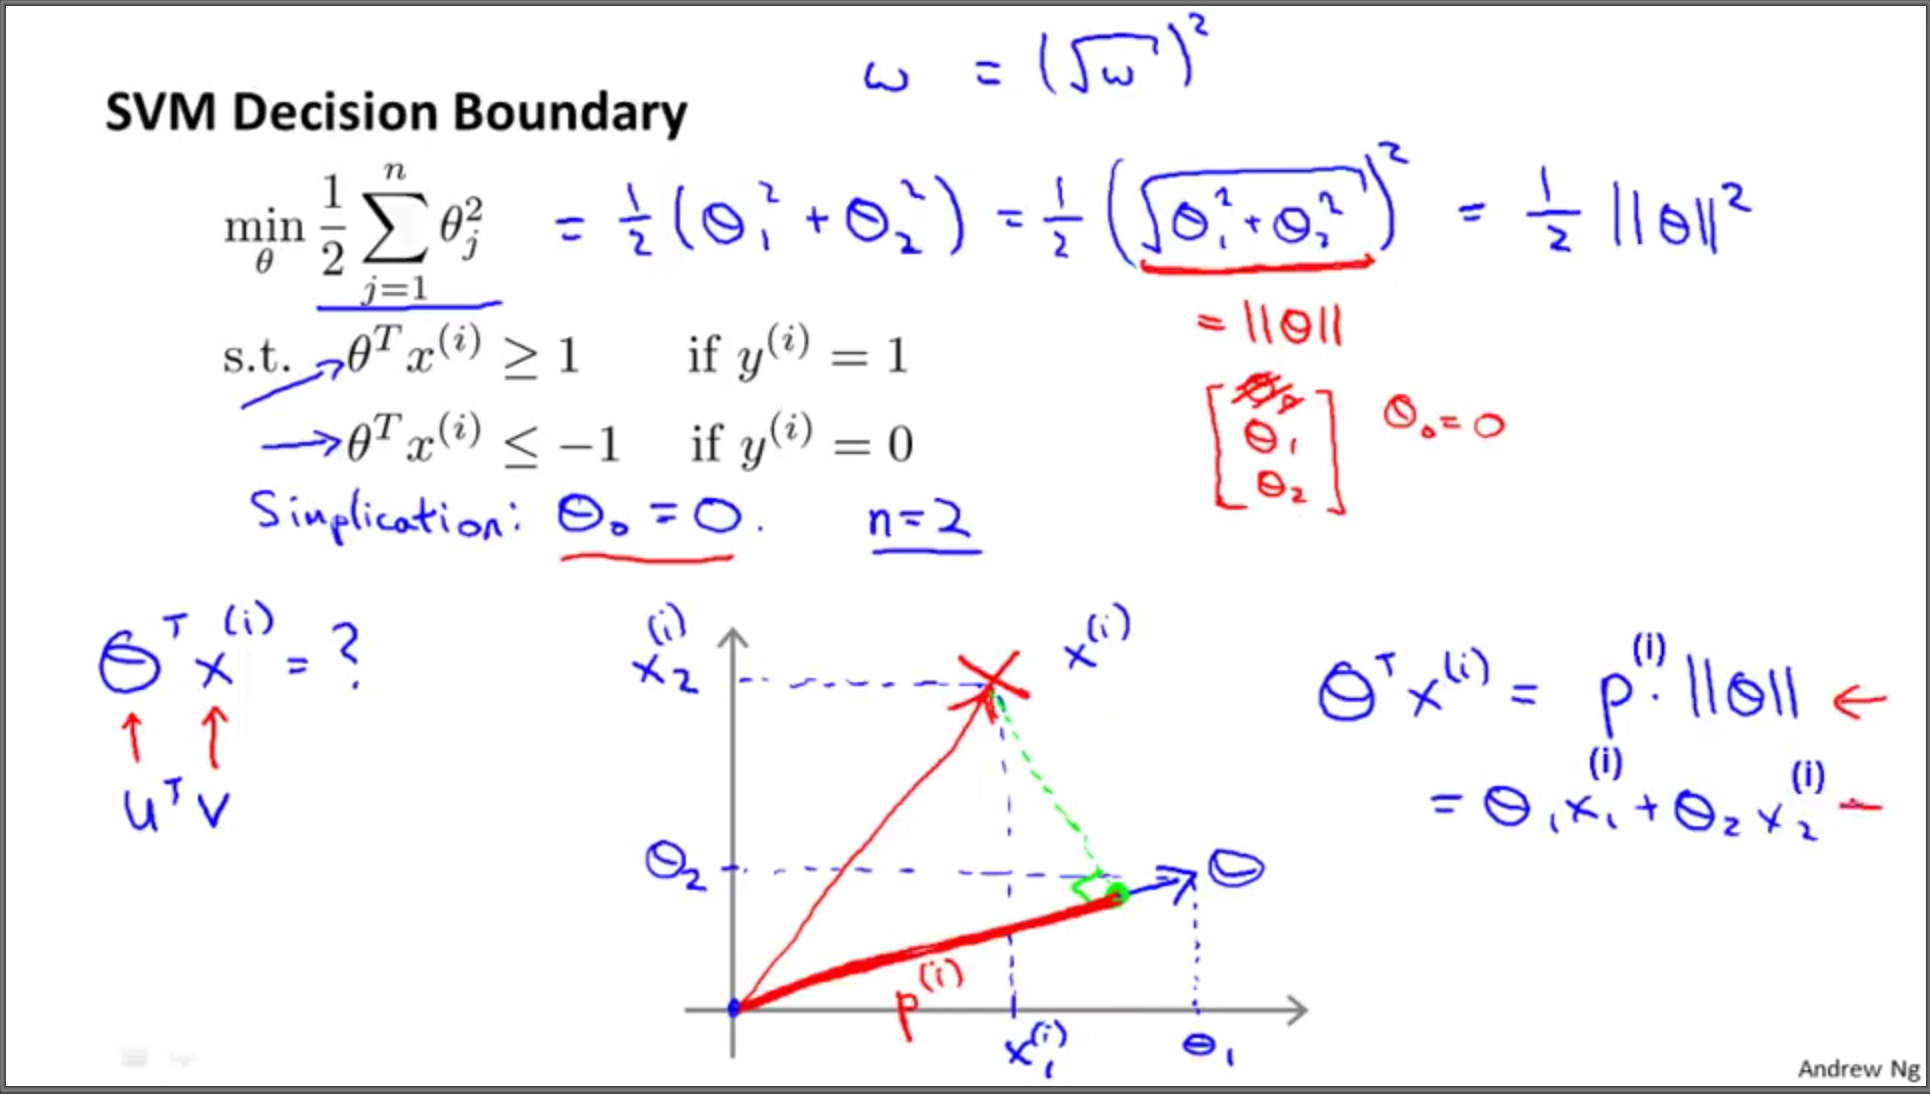 ω = (√ω)²
SVM Decision Boundary
min_θ 1/2 ∑_{j=1}^{n} θ_j² = 1/2 (θ₁² + θ₂²) = 1/2 (√θ₁² + θ₂²)² = 1/2 ||θ||²
= ||θ||
s.t. θ^T x^(i) ≥ 1 if y^(i) = 1
θ^T x^(i) ≤ −1 if y^(i) = 0
[θ₀ θ₁ θ₂] θ₀ = 0
Simplication: θ₀ = 0. n=2
θ^T x^(i) = ?
u^T v
x₂^(i)
x^(i)
θ₂
θ
p^(i)
x₁^(i)
θ₁
θ^T x^(i) = p^(i) · ||θ|| ←
= θ₁ x₁^(i) + θ₂ x₂^(i) –
Andrew Ng